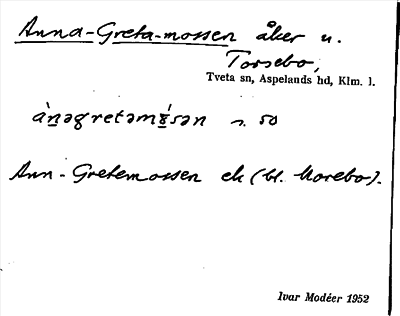 Anna-Greta-mossen åker u.
Torsebo,
Tveta sn, Aspelands hd, Klm. l.
Ann-Gretemossen ek (bl. Morebo).
Ivar Modéer 1952